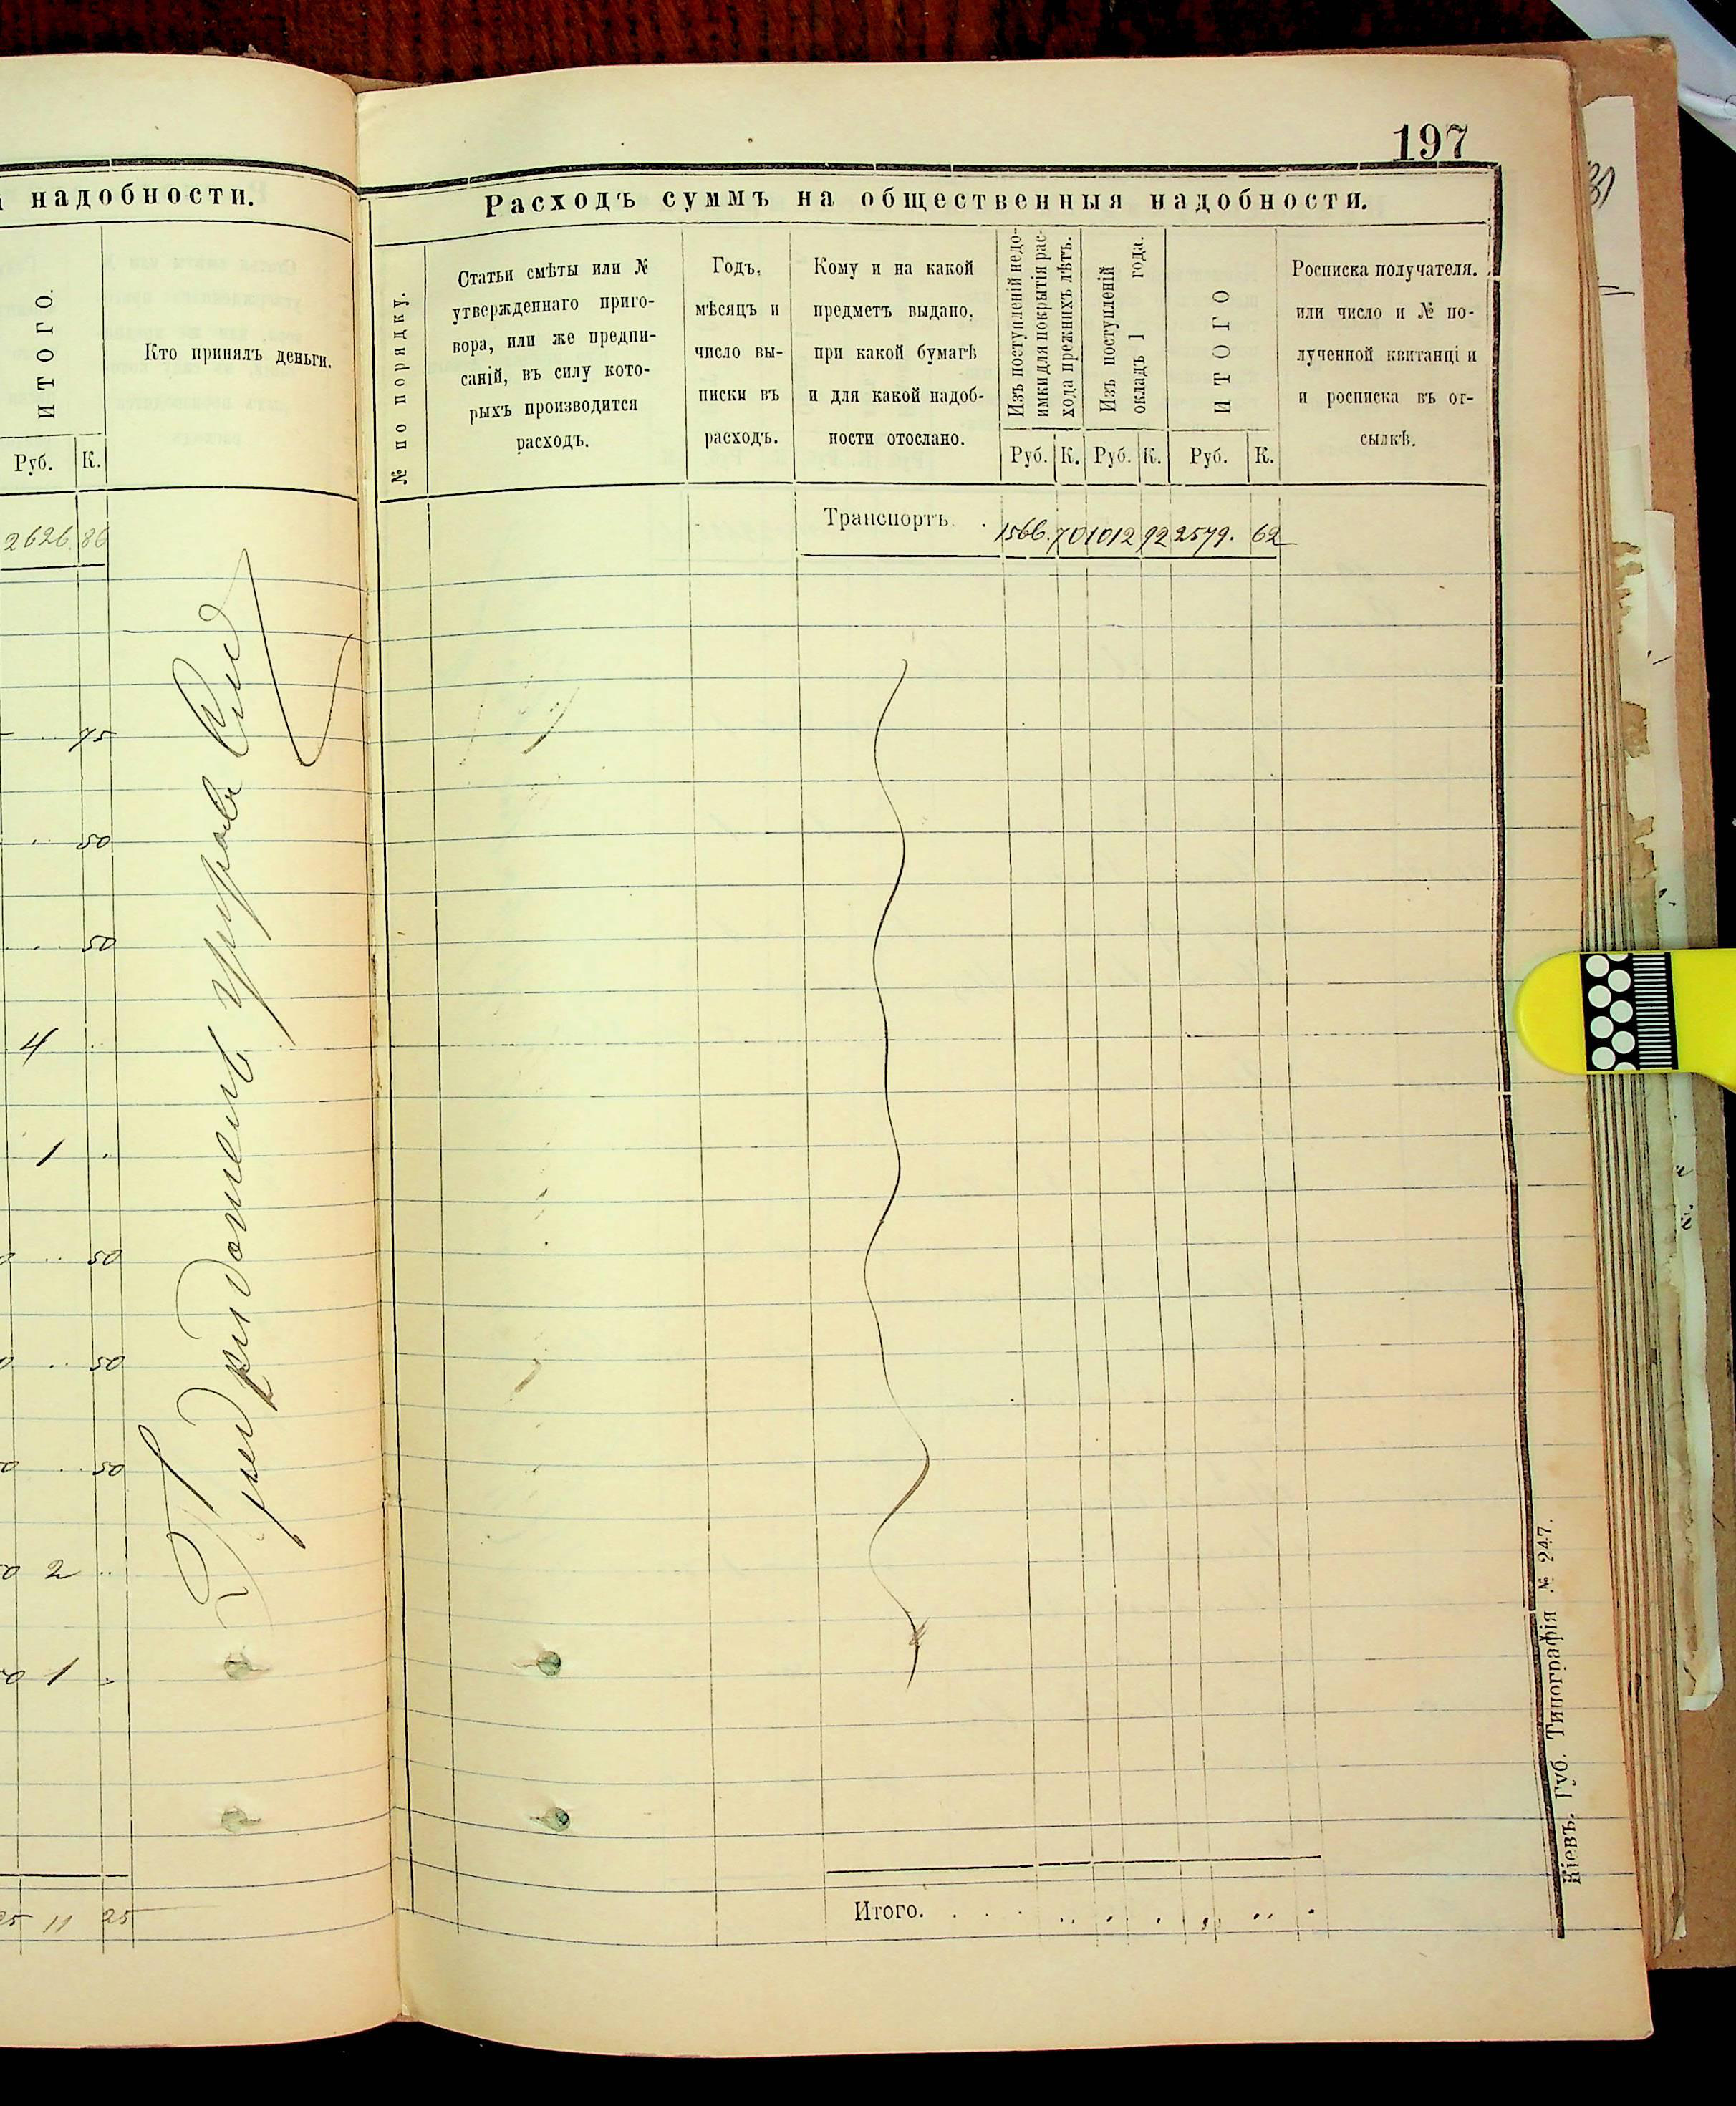 надобности.
ИТОГО.
Кто принялъ деньги.
Руб. К.
2626. 86
75
50
50
4
1
50
50
50
2
1
25 11 25
197
Расходъ суммъ на общественныя надобности.
№ по порядку.
Статьи смѣты или №
утвержденнаго приго-
вора, или же предпи-
саній, въ силу кото-
рыхъ производится
расходъ.
Годъ,
мѣсяцъ и
число вы-
писки въ
расходъ.
Кому и на какой
предметъ выдано,
при какой бумагѣ
и для какой надоб-
ности отослано.
Изъ поступленій недо-
имки для покрытія рас-
хода прежнихъ лѣтъ.
Изъ поступленій
окладъ 1 года.
ИТОГО
Росписка получателя.
или число и № по-
лученной квитанці и
и росписка въ от-
сылкѣ.
Руб. К. Руб. К. Руб. К.
Транспортъ. . 1566. 70 1012 92 2579. 62
Итого. . . .
Кіевъ. Губ. Типографія № 247.